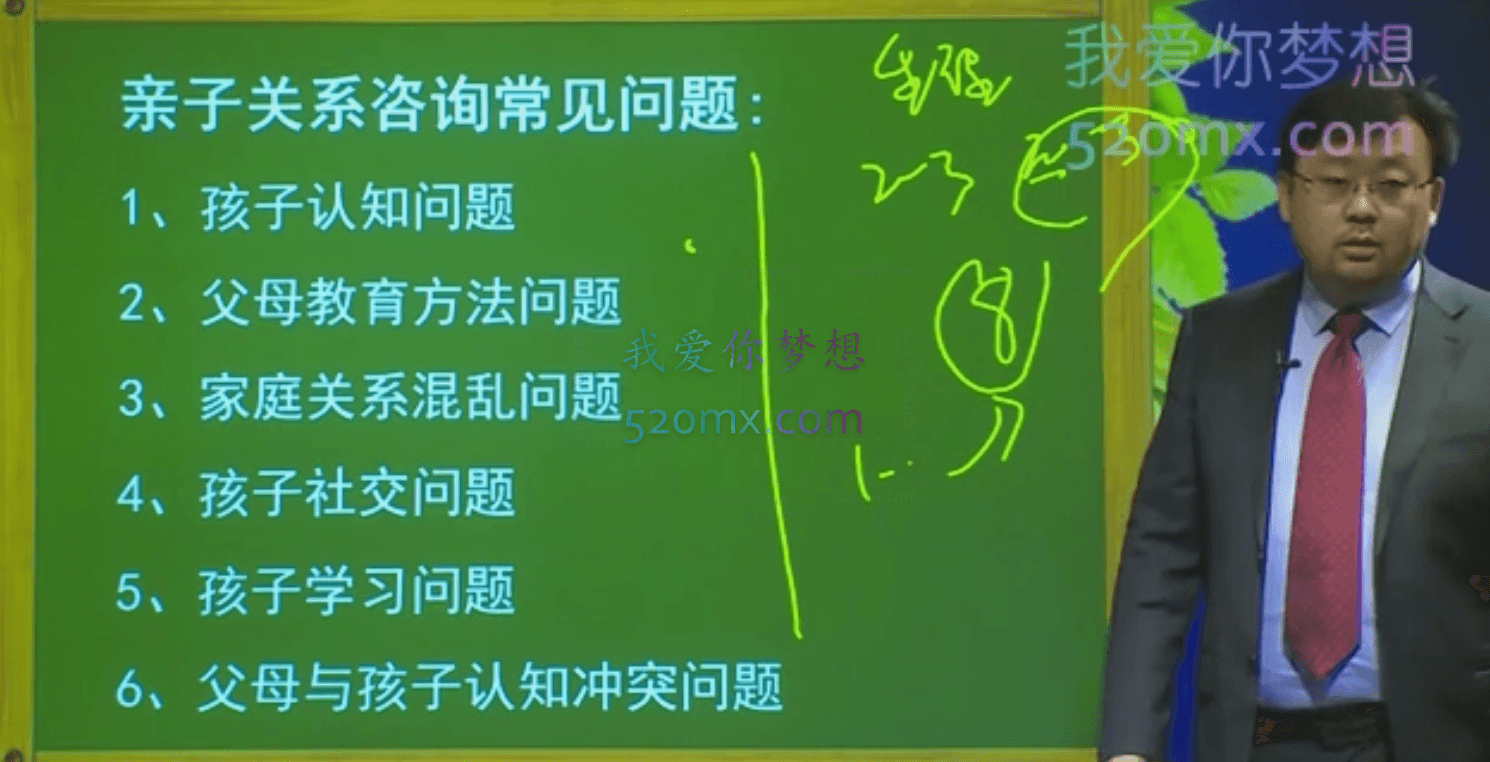 亲子关系咨询常见问题:
1、孩子认知问题
2、父母教育方法问题
3、家庭关系混乱问题
4、孩子社交问题
5、孩子学习问题
6、父母与孩子认知冲突问题
2-3
8
我爱你梦想
520mx.com
我爱你梦想
520mx.com